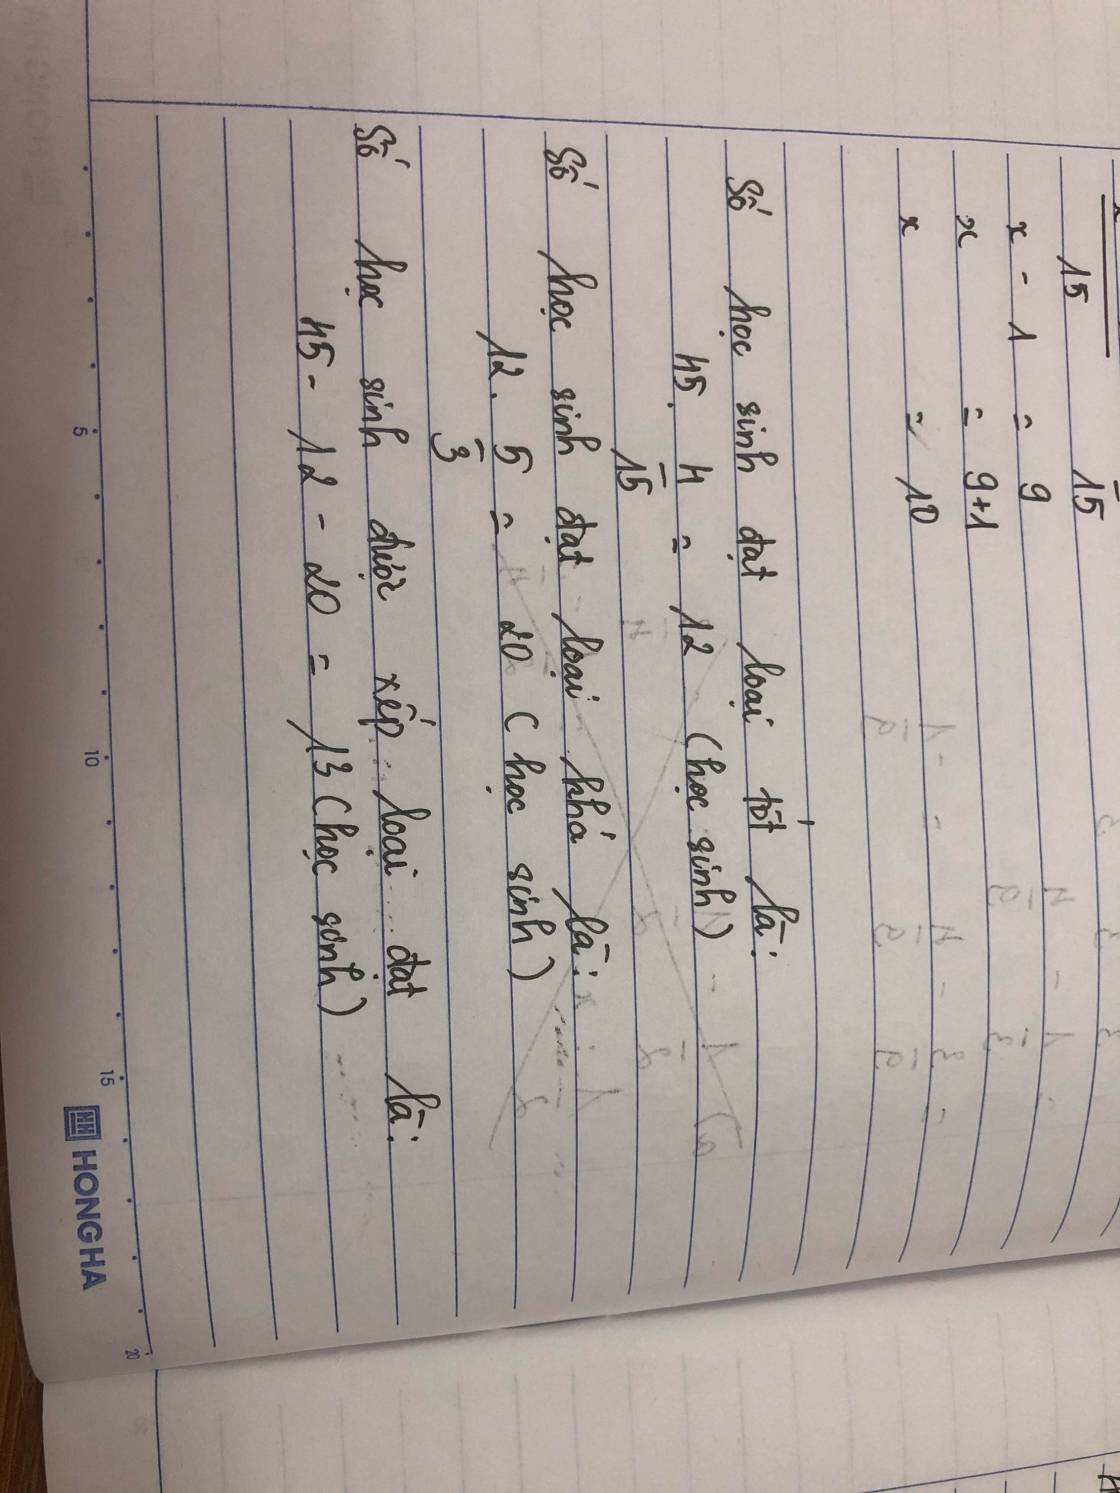 15 15
x - 1 = 9
x = 9+1
x = 10
Số học sinh đạt loại tốt là:
45 . 4/15 = 12 (học sinh)
Số học sinh đạt loại khá là:
12 . 5/3 = 20 (học sinh)
Số học sinh được xếp loại đạt là:
45 - 12 - 20 = 13 (học sinh)
5 10 15 20
HONG HA